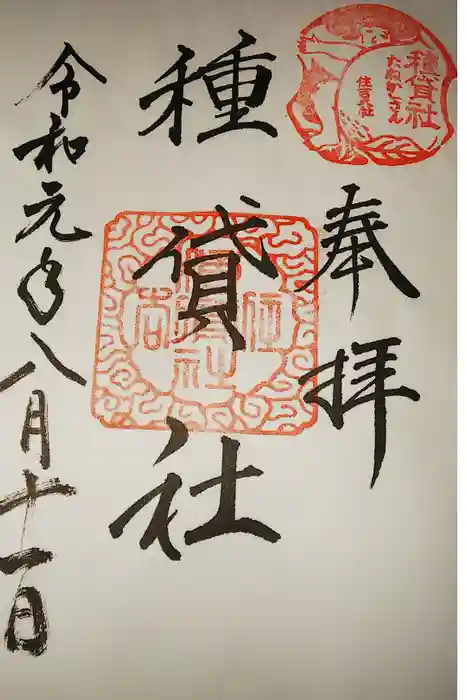 種貸社
たねかしさん
住吉大社
奉拝
種貸社
令和元年八月十一日